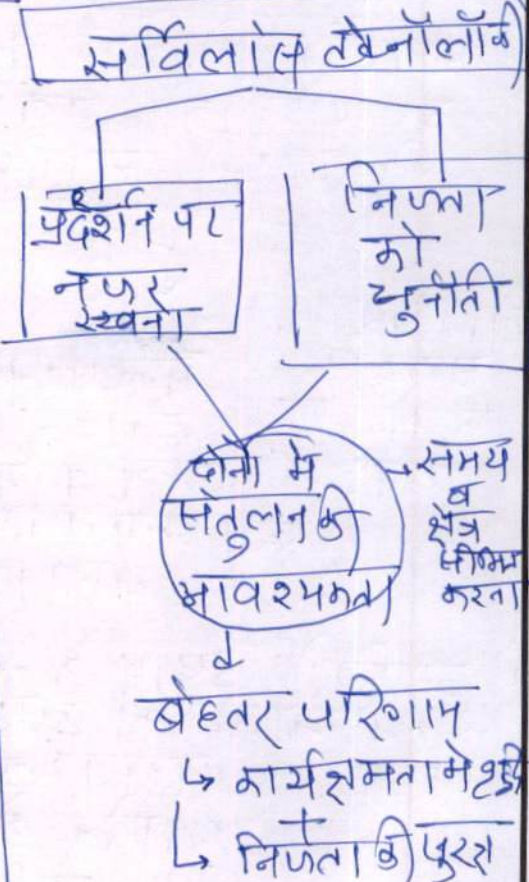 सर्विलांस टेक्नॉलॉजी
प्रदर्शन पर
नजर
रखना
निजता
को
चुनौती
दोनों में
संतुलन की
आवश्यकता
समय
व
क्षेत्र
सीमित
करना
बेहतर परिणाम
↳ कार्यक्षमता में वृद्धि
+
↳ निजता की सुरक्षा